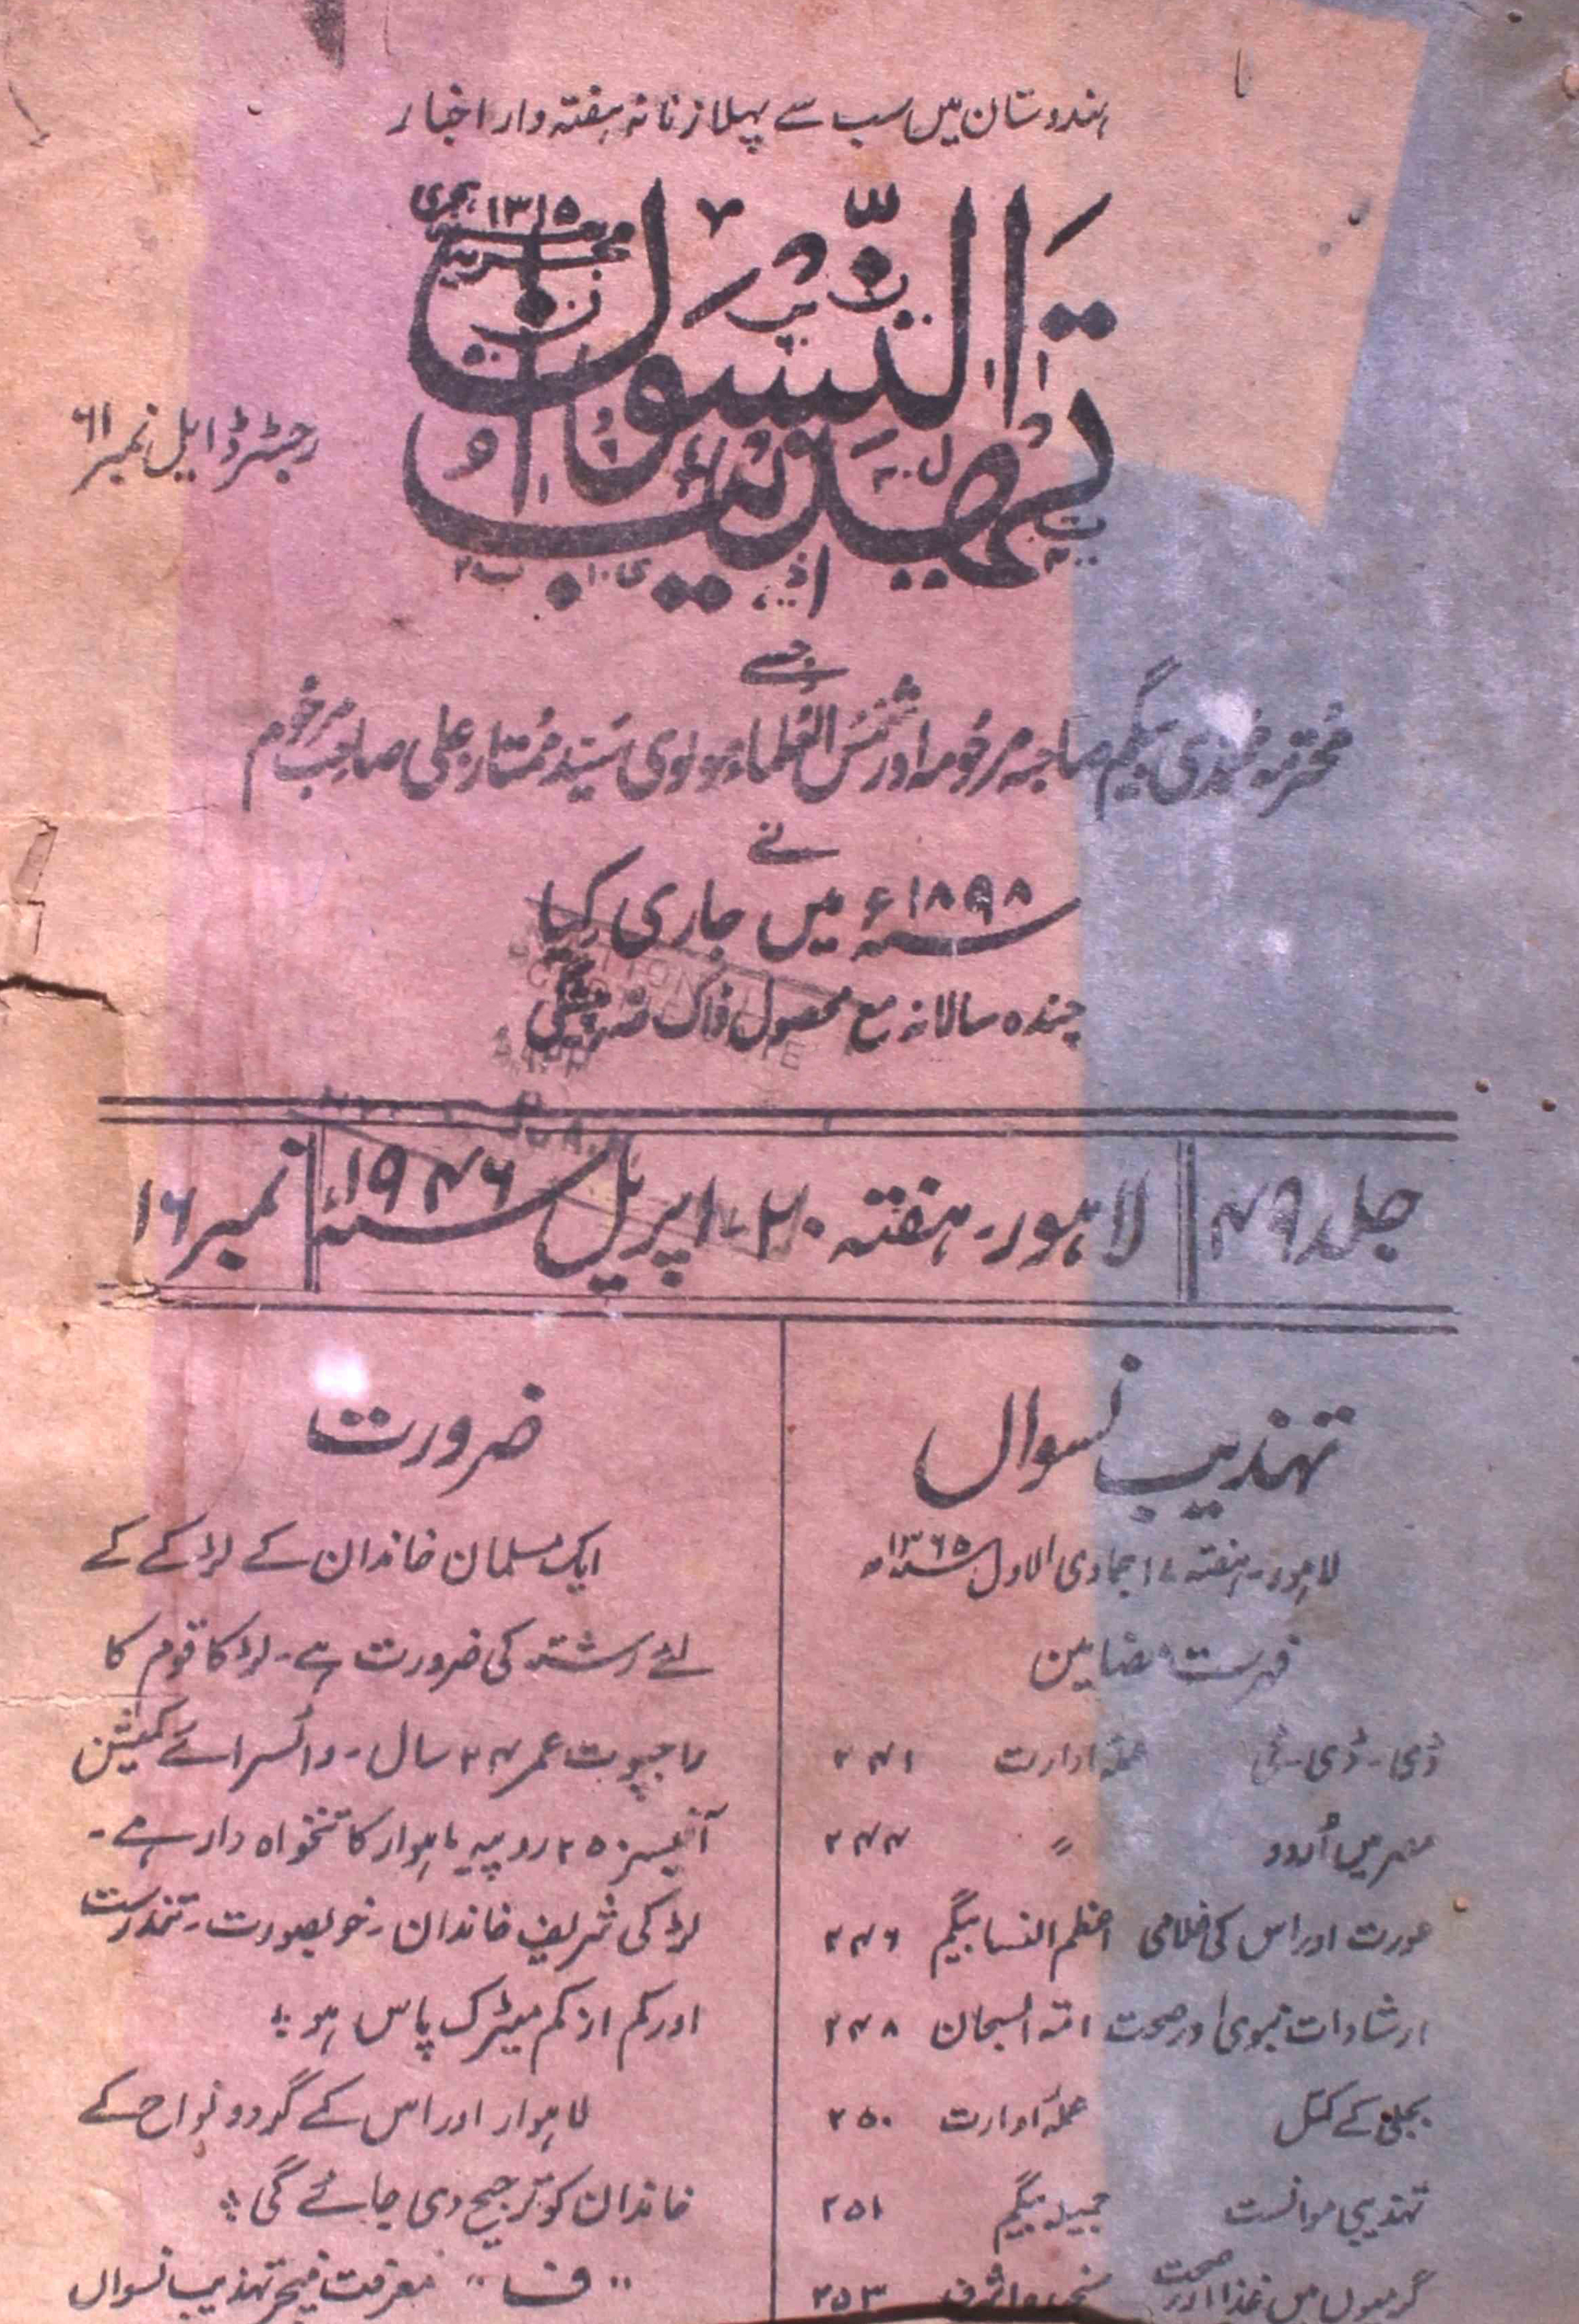 ہندوستان میں سب سے پہلا زنانہ ہفتہ وار اخبار
تہذیب النسواں
۱۳۱۵ ہجری
رجسٹرڈ ایل نمبر ۶۱
جسے
محترمہ محمدی بیگم صاحبہ مرحومہ اور شمس العلماء مولوی سید ممتاز علی صاحب مرحوم
نے
۱۸۹۸ء میں جاری کیا
چندہ سالانہ مع محصول ڈاک پیشگی
جلد ۴۹
لاہور۔ ہفتہ ۲۰۔ اپریل ۱۹۴۶ء
نمبر ۱۶
تہذیب نسواں
لاہور۔ ہفتہ ۱۷ جمادی الاول ۱۳۶۵ھ
فہرست مضامین
ڈی۔ ڈی۔ ٹی عملہ ادارت ۲۴۱
مصر میں اُردو " ۲۴۴
عورت اور اس کی غلامی اعظم النسا بیگم ۲۴۶
ارشادات نبوی اور صحت امتہ السبحان ۲۴۸
بجلی کے کمبل عملہ ادارت ۲۵۰
تہذیبی موانست جمیلہ بیگم ۲۵۱
گرمیوں میں غذا اور صحت اشرف ۲۵۳
ضرورت
ایک مسلمان خاندان کے لڑکے کے
لئے رشتہ کی ضرورت ہے۔ لڑکا قوم کا
راجپوت عمر ۲۴ سال۔ وائسرائے کمیشن
آفیسر ۲۵۰ روپیہ ماہوار کا تنخواہ دار ہے۔
لڑکی شریف خاندان۔ خوبصورت۔ تندرست
اور کم از کم میٹرک پاس ہو ؛
لاہور اور اس کے گردو نواح کے
خاندان کو ترجیح دی جائے گی ؛
"ف" معرفت منیجر تہذیب نسواں